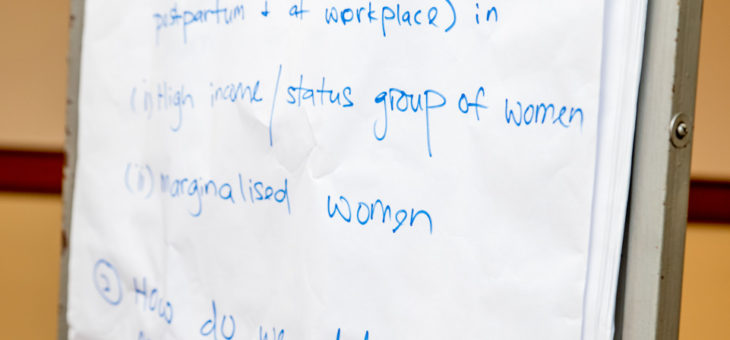 postpartum + at workplace) in
(i) High income/status group of women
(ii) marginalised women
② How do we